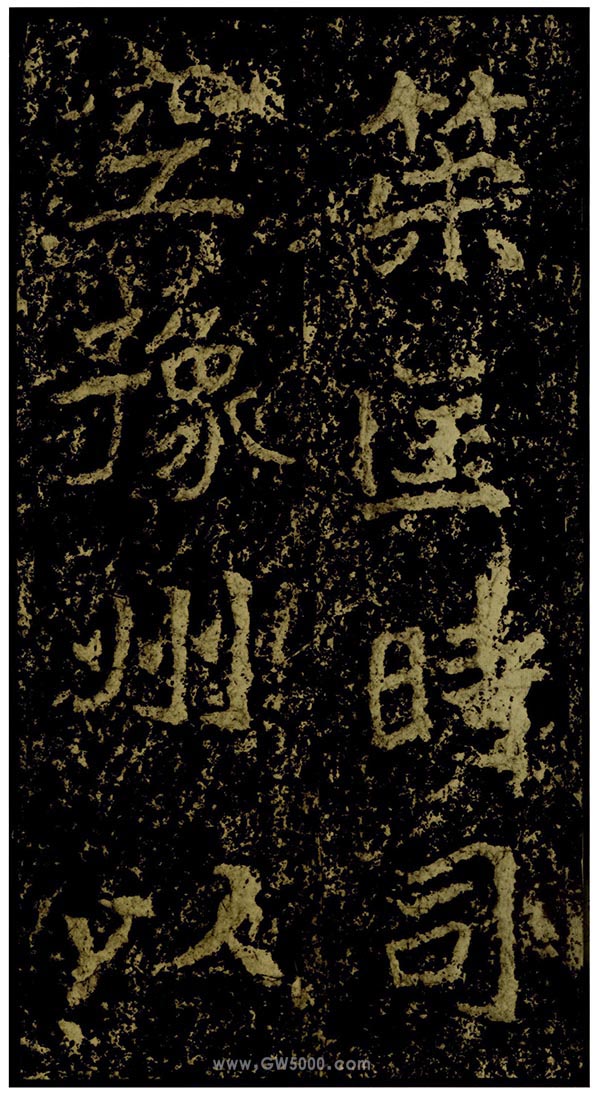 策匡時司
空豫州以
www.GW5000.com